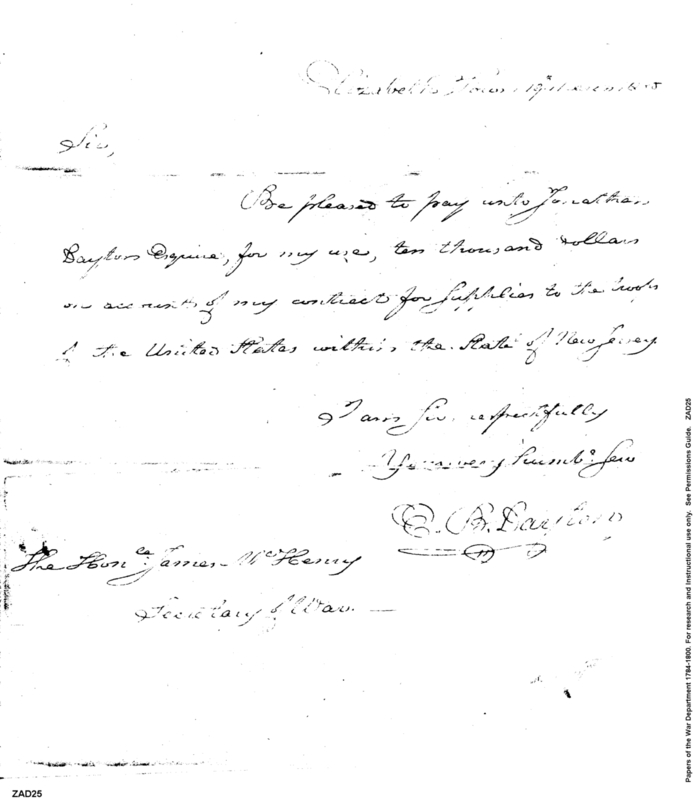 Elizabeth Town 19th
Sir,
Be pleased to pay unto Jonathan
Dayton Esquire, for my use, ten thousand dollars
on account of my contract for supplies to the troops
of the United States within the State of New Jersey
I am Sir, respectfully
Your very humbe. Serv
E. B. Dayton
The Honble. James McHenry
Secretary of War
Papers of the War Department 1784-1800. For research and instructional use only. See Permissions Guide. ZAD25
ZAD25